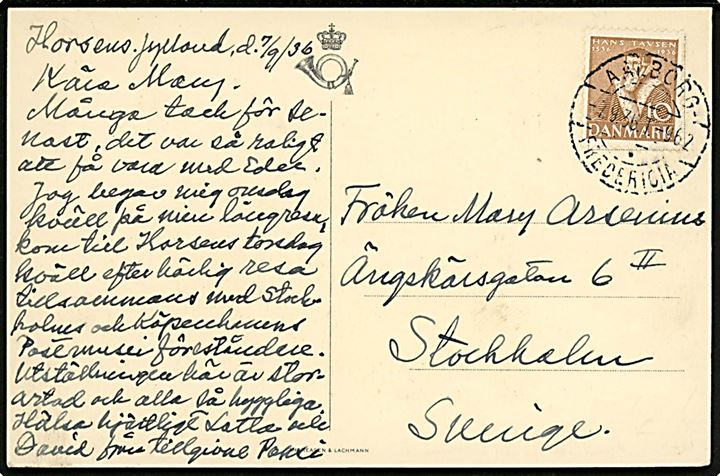 Horsens. Jylland, d. 7/9/36
Kära Mary.
Många tack för se-
nast, det var så roligt
att få vara med Eder.
Jag begav mig onsdag
kväll på min långresa,
kom till Horsens torsdag
kväll efter härlig resa
tillsammans med Stock-
holms och Köpenhamns
Postmusei föreståndare.
Utställningen här är stor-
artad och alla så hyggliga.
Hälsa hjärtligt
David från tillgivne
HANS TAVSEN
1536 1936
10
DANMARK
AALBORG-
FREDERICIA
Fröken Mary Arsenius
Ängskärsgatan 6 II
Stockholm
Sverige.
& LACHMANN